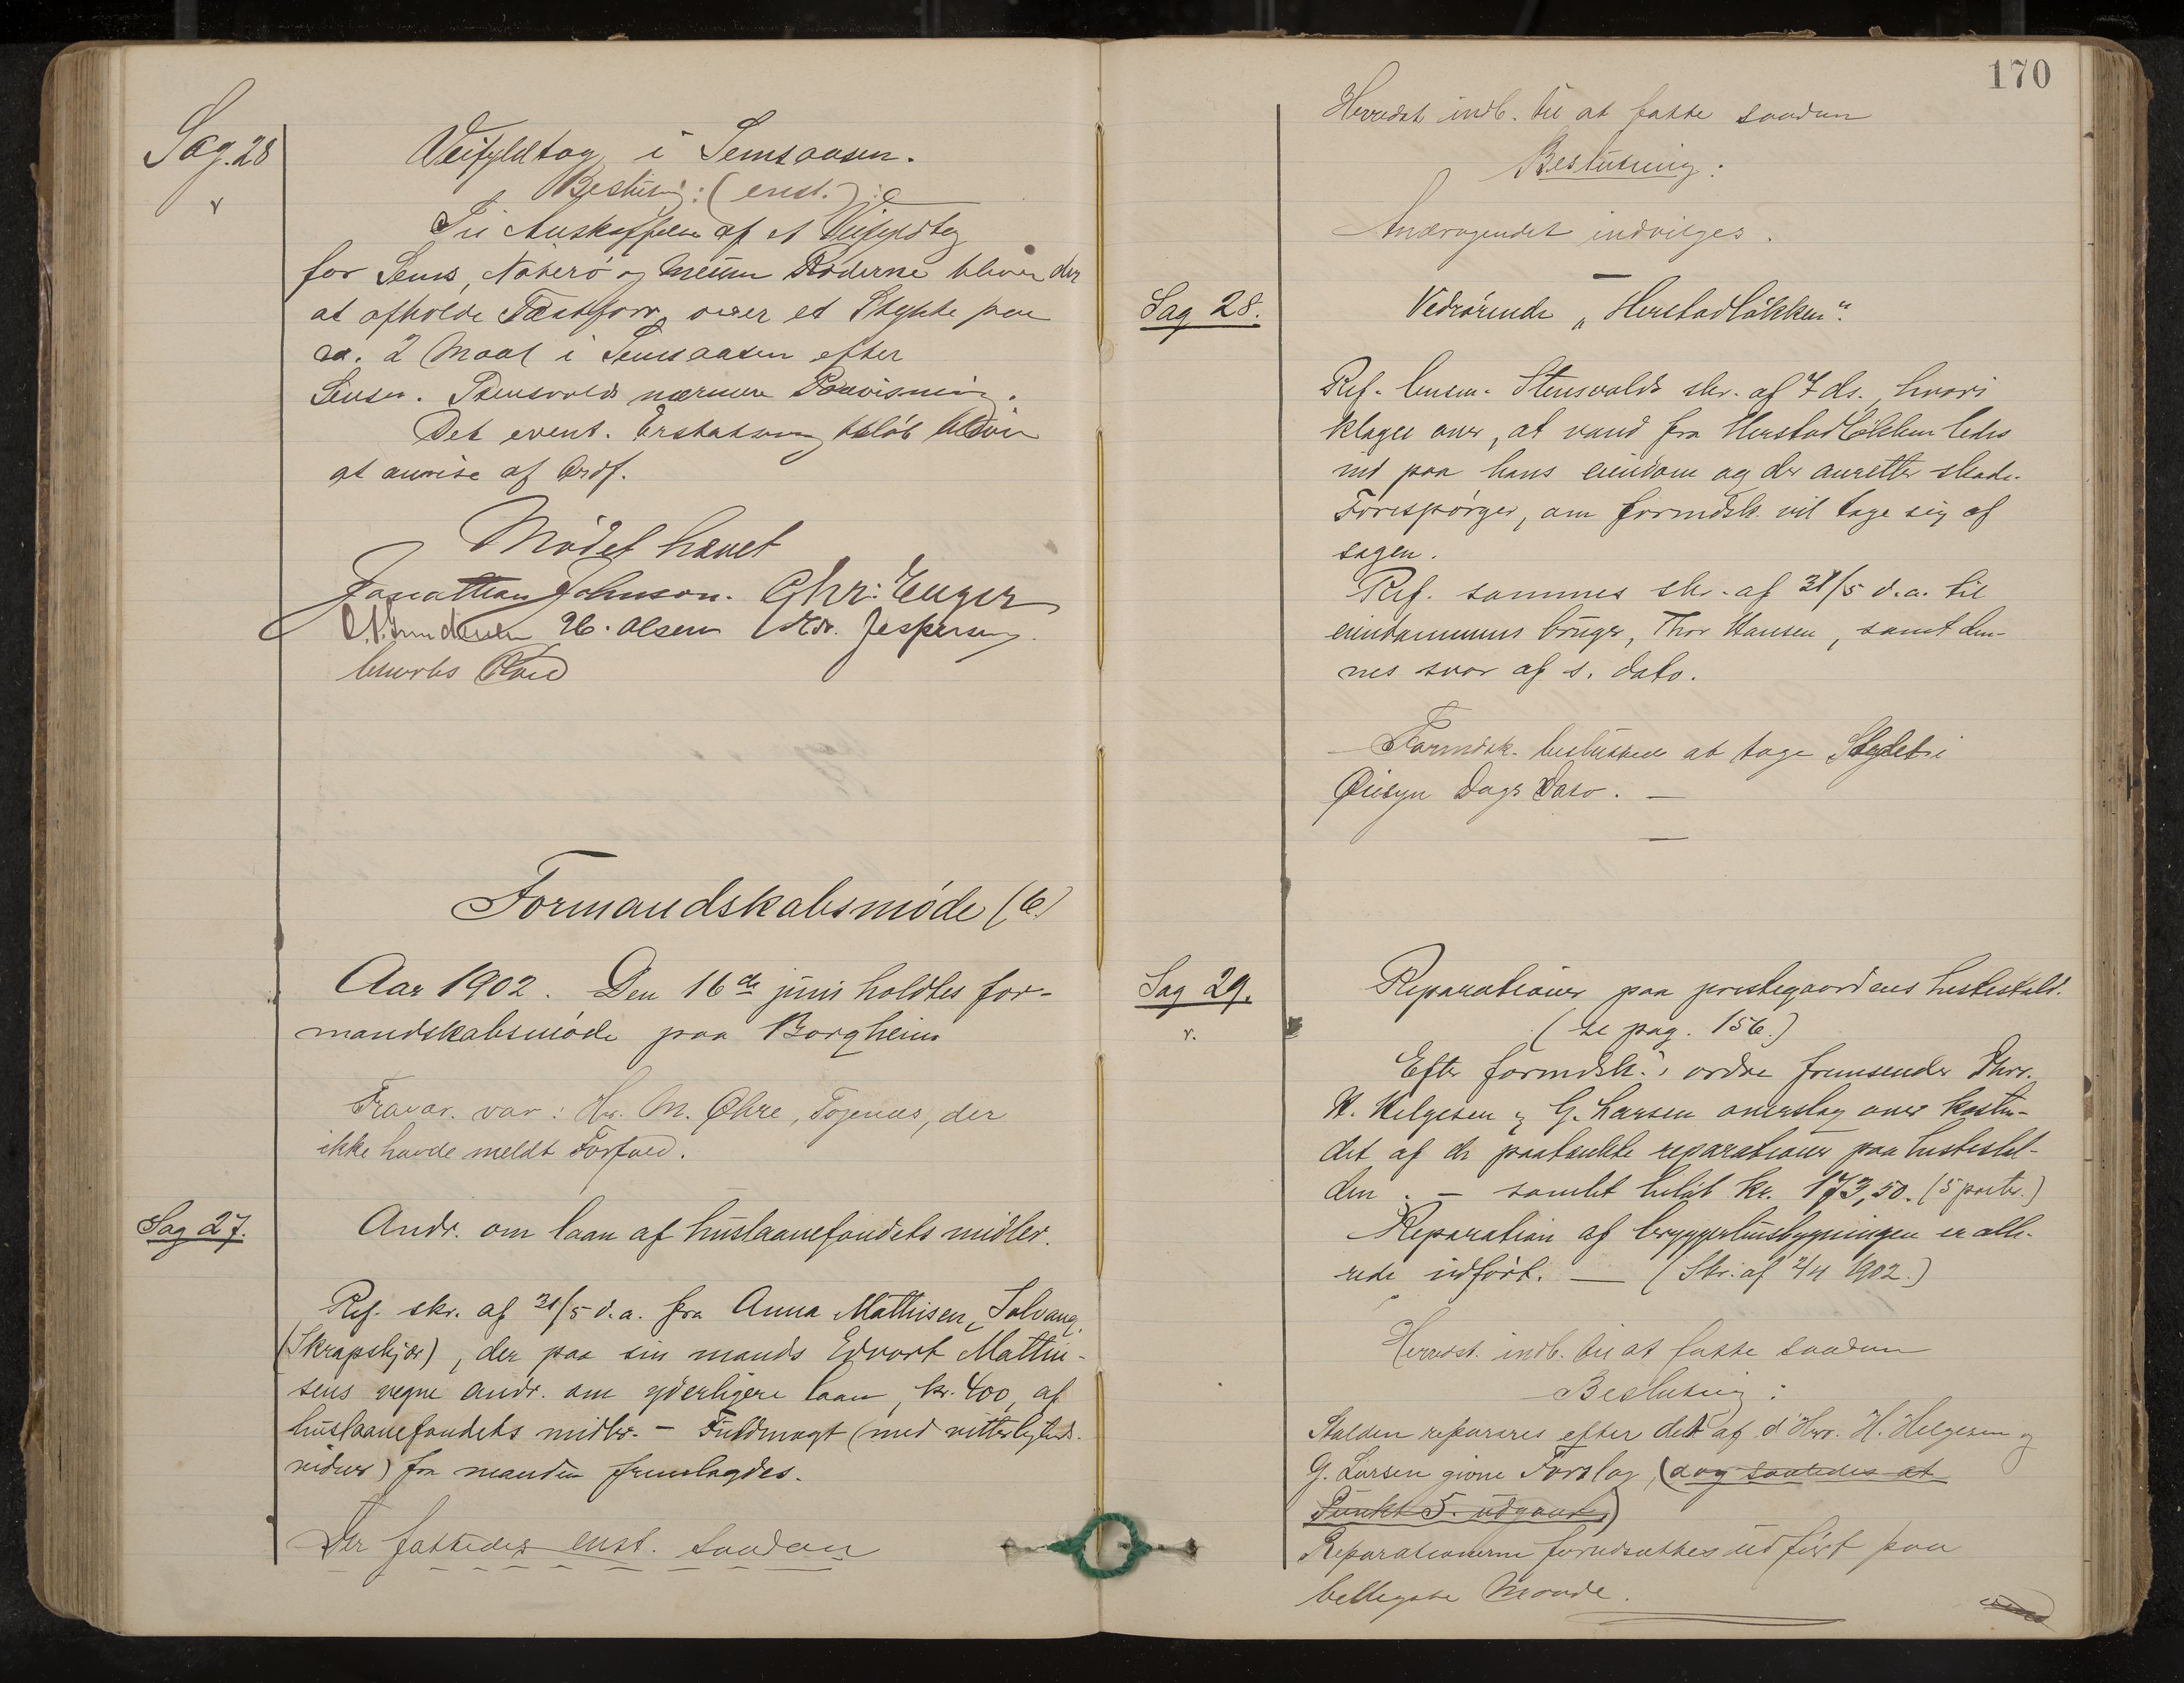 Sag. 28
v
Veifyldtag i Semsaasen.
Beslutning: (enst.) :
Til Anskaffelse af et Veifyldtag
for Sems, Nøterø og Roderne bliver der
at afholde Taxtforr. over et Stykke paa
ca. 2 Maal i Semsaasen efter
Lensm. Stensvolds nærmere Paavisning.
Det event. Erstatningsbeløb bliver
at anvise af Ordf.
Mødet hævet
Jonathan Johnson. Chr: Enger
H. Olsen Edv. Jespersen.
Formandskabsmøde (6)
Aar 1902. Den 16de juni holdtes for-
mandskabsmøde paa Borgheim
Fravær. var: Hr. M. Øhre, Tojenæs, der
ikke havde meldt Forfald.
Sag 27.
Andr. om laan af huslaanefondets midler.
Ref. skr. af 31/5 d.a. fra Anna Mathisen, Solvang
(Skrapskjær), der paa sin mands Edvart Mathi-
sens vegne andr. om yderligere laan, kr. 400, af
huslaanefondets midler. – Fuldmagt (med vitterligheds-
vidner) fra manden fremlagdes.
Der fattedes enst. saadan
170
Herredst. indb. til at fatte saadan
Beslutning:
Andragendet indvilges.
Sag 28.
Vedrørende „Herstadløkken".
Ref. lensm. Stensvolds skr. af 7 ds., hvori
klages over, at vand fra Herstadløkken ledes
ind paa hans eiendom og der anretter skade.
Forespørger, om formdsk. vil tage sig af
sagen.
Ref. sammes skr. af 31/5 d.a. til
eiendommens bruger, Thor Hansen, samt den-
nes svar af s. dato.
Formdsk. besluttede at tage Stedet i
Øiesyn Dags Dato. —
Sag 29.
v.
Reparationer paa prestegaardens hestestald.
(se pag. 156.)
Efter formdsk.'s ordre fremsender Dhrr.
H. Helgesen & G. Larsen overslag over kostn-
det af de paatænkte reparationer paa hestestal-
den. – samlet beløb kr. 173,50. (5 poster.)
Reparation af bryggerhusbygningen er alle-
rede udført. — (Skr. af 2/4 1902.)
Herredst. indb. til at fatte saadan
Beslutning:
Stalden repareres efter det af d'Hrr. H. Helgesen og
G. Larsen givne Forslag, (dog saaledes at
Punkt 5. udgaar.)
Reparationerne forudsættes udført paa
billigste Maade.